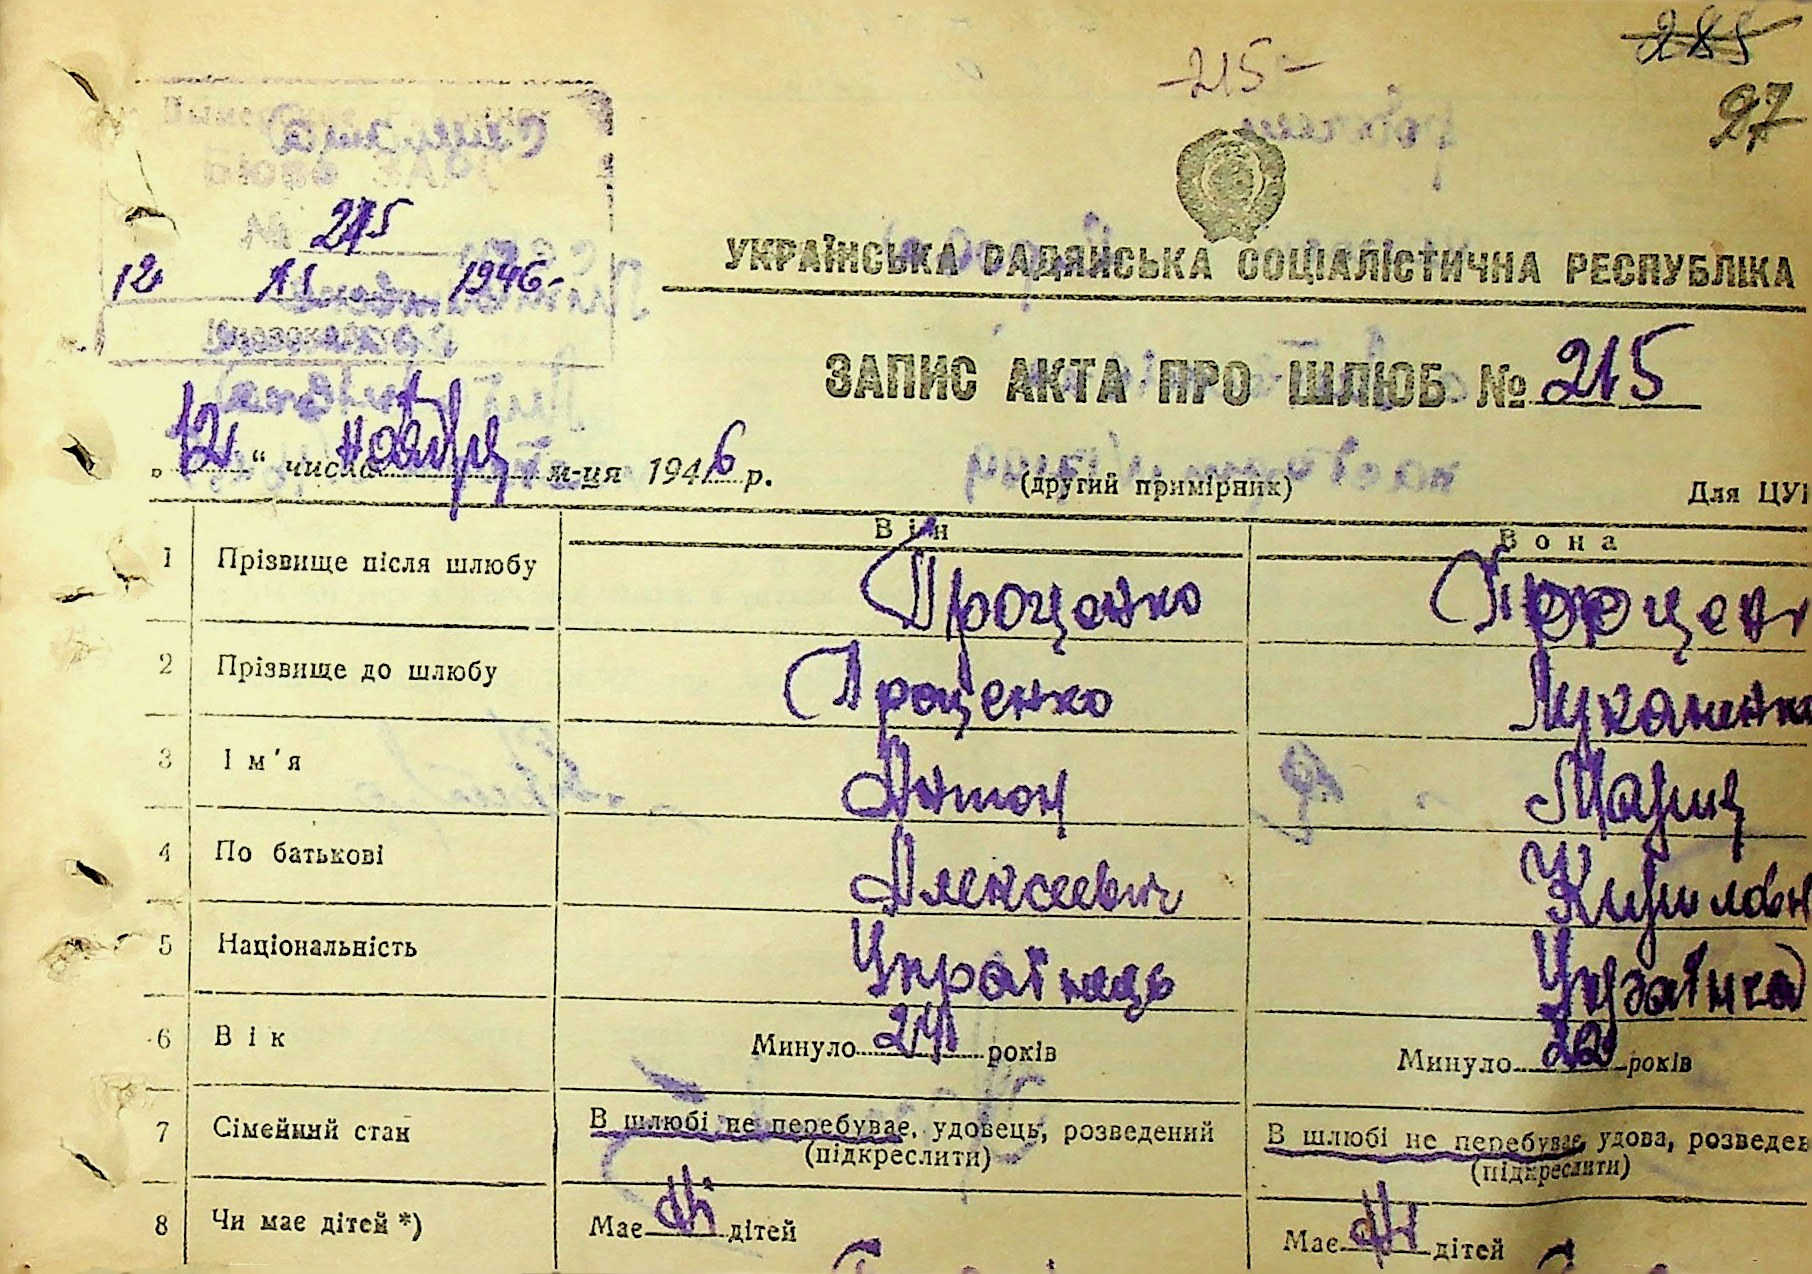 285
-215-
97
№ 215
12 11 1946-
УКРАЇНСЬКА РАДЯНСЬКА СОЦІАЛІСТИЧНА РЕСПУБЛІКА
ЗАПИС АКТА ПРО ШЛЮБ № 215
„12“ числа ноября м-ця 1946 р.
(другий примірник)
Для ЦУ
Він Вона
1 Прізвище після шлюбу Проценко Процен
2 Прізвище до шлюбу Проценко Луканенк
3 Ім'я Антон Мария
4 По батькові Алексеевич Кириловн
5 Національність Українець Українка
6 Вік Минуло 24 років Минуло 22 років
7 Сімейний стан В шлюбі не перебуває, удовець, розведений В шлюбі не перебуває, удова, розведен
(підкреслити) (підкреслити)
8 Чи має дітей *) Має ні дітей Має ні дітей